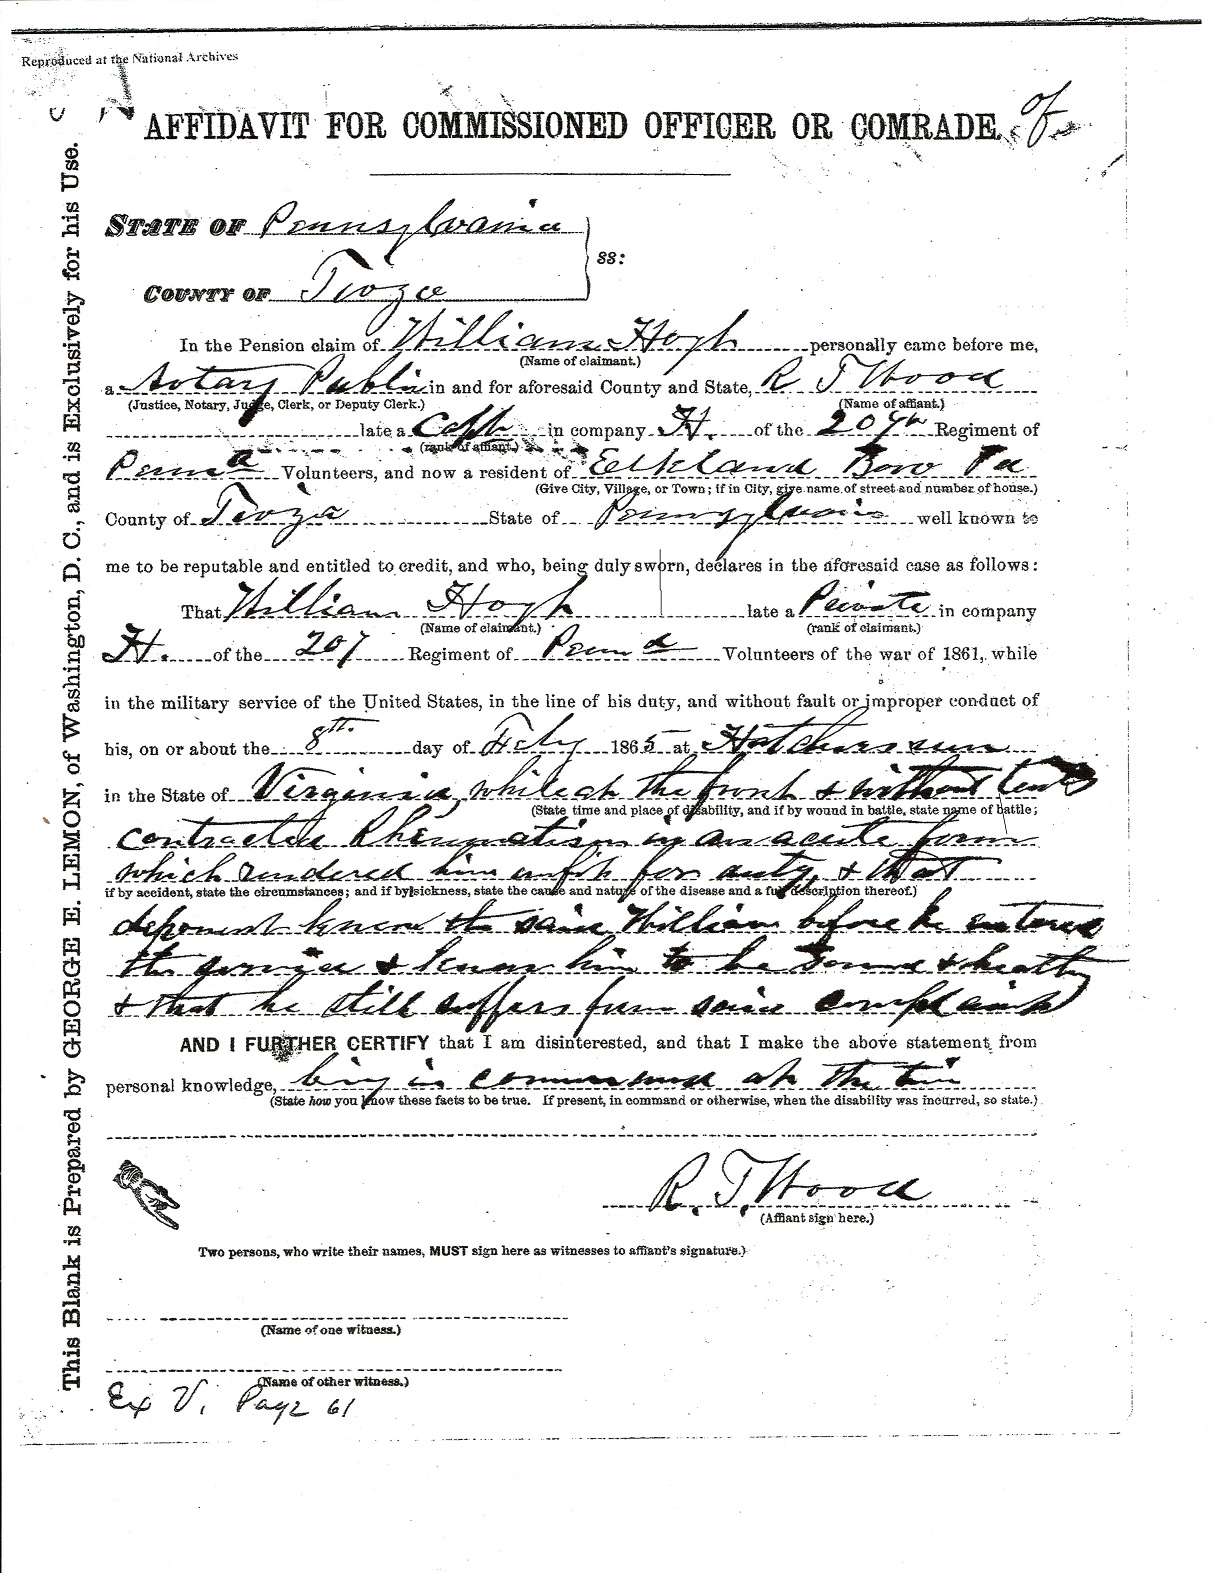 Reproduced at the National Archives
AFFIDAVIT FOR COMMISSIONED OFFICER OR COMRADE.
STATE OF Pennsylvania
ss:
COUNTY OF Tioga
In the Pension claim of William Hoyh personally came before me,
(Name of claimant.)
a Notary Public in and for aforesaid County and State, R T Wood
(Justice, Notary, Judge, Clerk, or Deputy Clerk.) (Name of affiant.)
late a Capt in company H. of the 207th Regiment of
(rank of affiant.)
Penna Volunteers, and now a resident of Elkland Boro Pa
(Give City, Village, or Town; if in City, give name of street and number of house.)
County of Tioga State of Pennsylvania well known to
me to be reputable and entitled to credit, and who, being duly sworn, declares in the aforesaid case as follows:
That William Hoyh late a Private in company
(Name of claimant.) (rank of claimant.)
H. of the 207 Regiment of Penna Volunteers of the war of 1861, while
in the military service of the United States, in the line of his duty, and without fault or improper conduct of
his, on or about the 8th. day of Feby 1865 at Hatchers run
in the State of Virginia, while at the front & without tents
(State time and place of disability, and if by wound in battle, state name of battle;
contracted Rheumatism in an acute form
which rendered him unfit for duty, & that
if by accident, state the circumstances; and if by sickness, state the cause and nature of the disease and a full description thereof.)
deponent knew the said William before he entered
the service & knew him to be sound & healthy
& that he still suffers from said complaint
AND I FURTHER CERTIFY that I am disinterested, and that I make the above statement from
personal knowledge, being in command at the time
(State how you know these facts to be true. If present, in command or otherwise, when the disability was incurred, so state.)
R. T. Wood
(Affiant sign here.)
Two persons, who write their names, MUST sign here as witnesses to affiant's signature.)
(Name of one witness.)
(Name of other witness.)
Ex V. Page 61
This Blank is Prepared by GEORGE E. LEMON, of Washington, D. C., and is Exclusively for his Use.